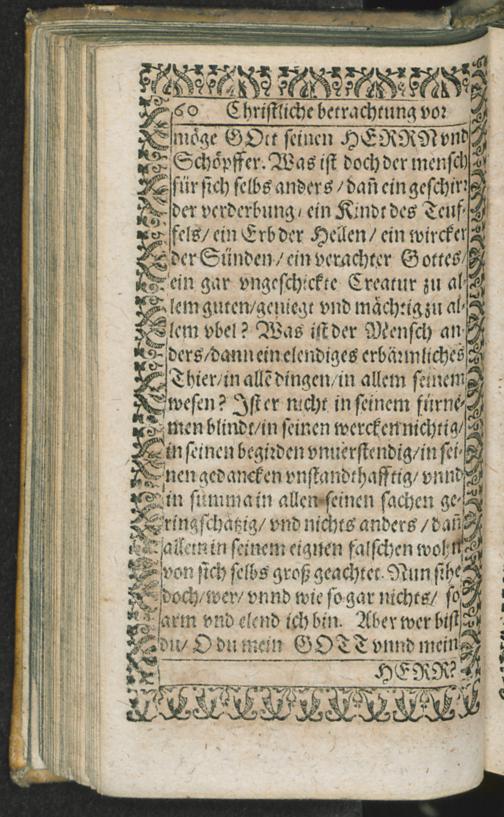 60 Christliche betrachtung vor
möge GOtt seinen HERRN vnd
Schöpffer. Was ist doch der mensch
für sich selbs anders / dañ ein geschirr
der verderbung / ein Kindt des Teuf-
fels / ein Erb der Hellen / ein wircker
der Sünden / ein verachter Gottes /
ein gar vngeschickte Creatur zu al-
lem guten / geniegt vnd mächtig zu al-
lem vbel? Was ist der Mensch an-
ders / dann ein elendiges erbärmliches
Thier / in allē dingen / in allem seinem
wesen? Ist er nicht in seinem fürnē-
men blindt / in seinen wercken nichtig /
in seinen begirden vnuerstendig / in sei-
nen gedancken vnstandthafftig / vnnd
in summa in allen seinen sachen ge-
ringschätzig / vnd nichts anders / dañ
allein in seinem eignen falschen wohn
von sich selbs groß geachtet. Nun sihe
doch / wer / vnnd wie so gar nichts / so
arm vnd elend ich bin. Aber wer bist
du / O du mein GOTT vnnd mein
HERR?